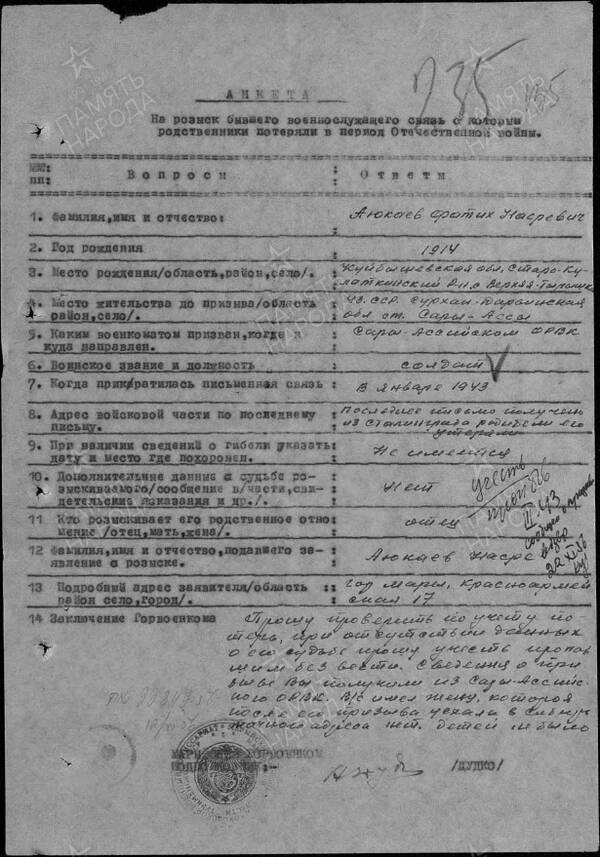 735
А Н К Е Т А
На розыск бывшего военнослужащего связь с которым
родственники потеряли в период Отечественной войны.
В о п р о с ы : О т в е т ы
1. Фамилия,имя и отчество: Аюкаев Фатих Насревич
2. Год рождения 1914
3. Место рождения/область,район,село/. Куйбышевская обл. Старо-Ку-
латкинский р-н с. Верхняя
4. Место жительства до призыва/область
район,село/. Уз. ССР. Сурхан-Дарьинская
обл ст. Сары-Ассы
5. Каким военкоматом призван,когда и
куда направлен. Сары-Ассийском ОРВК
6. Воинское звание и должность солдат
7. Когда прикратилась письменная связь : В январе 1943
8. Адрес войсковой части по последнему
письму. Последнее письмо получено
из Сталинграда родители его
9. При наличии сведений о гибели указать:
дату и место где похоронен. Не имеется
10. Дополнительние данние о судьбе ро-
зыскиваемого/сообщение в/части,сви-
детельские показания и др./. Нет
учесть
проп б/в
III-43
22 XI 56
11 Кто розыскивает его родственное отно :
шение /отец,мать,жена/. отец
12 Фамилия,имя и отчество,подавшего за-
явление о розыске. Аюкаев Насре
13 Подробный адрес заявителя/область
район село,город/. гор Мары, Красноармей
ская 17
14 Заключение Горвоенкома Прошу проверить по учету по-
терь, при отсутствии данных
о его судьбе прошу учесть пропав
шим без вести. Сведения о при
зыве Вы получили из Сары-Ассийс
кого ОРВК. В/с имел жену, которая
после его призыва уехала в
адреса нет. Детей не было
МАРЫЙСКИЙ ГОРВОЕНКОМ
ПОДПОЛКОВНИК:- /ДУДКО/
ПАМЯТЬ
НАРОДА